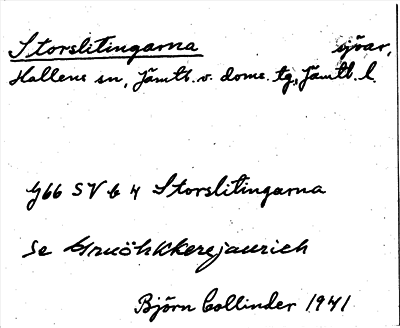 Storslitingarna sjöar,
Hallens sn, Jämtl. v. doms. tg, Jämtl. l.
Y66 SV b 4 Storslitingarna
Se
Björn Collinder 1941